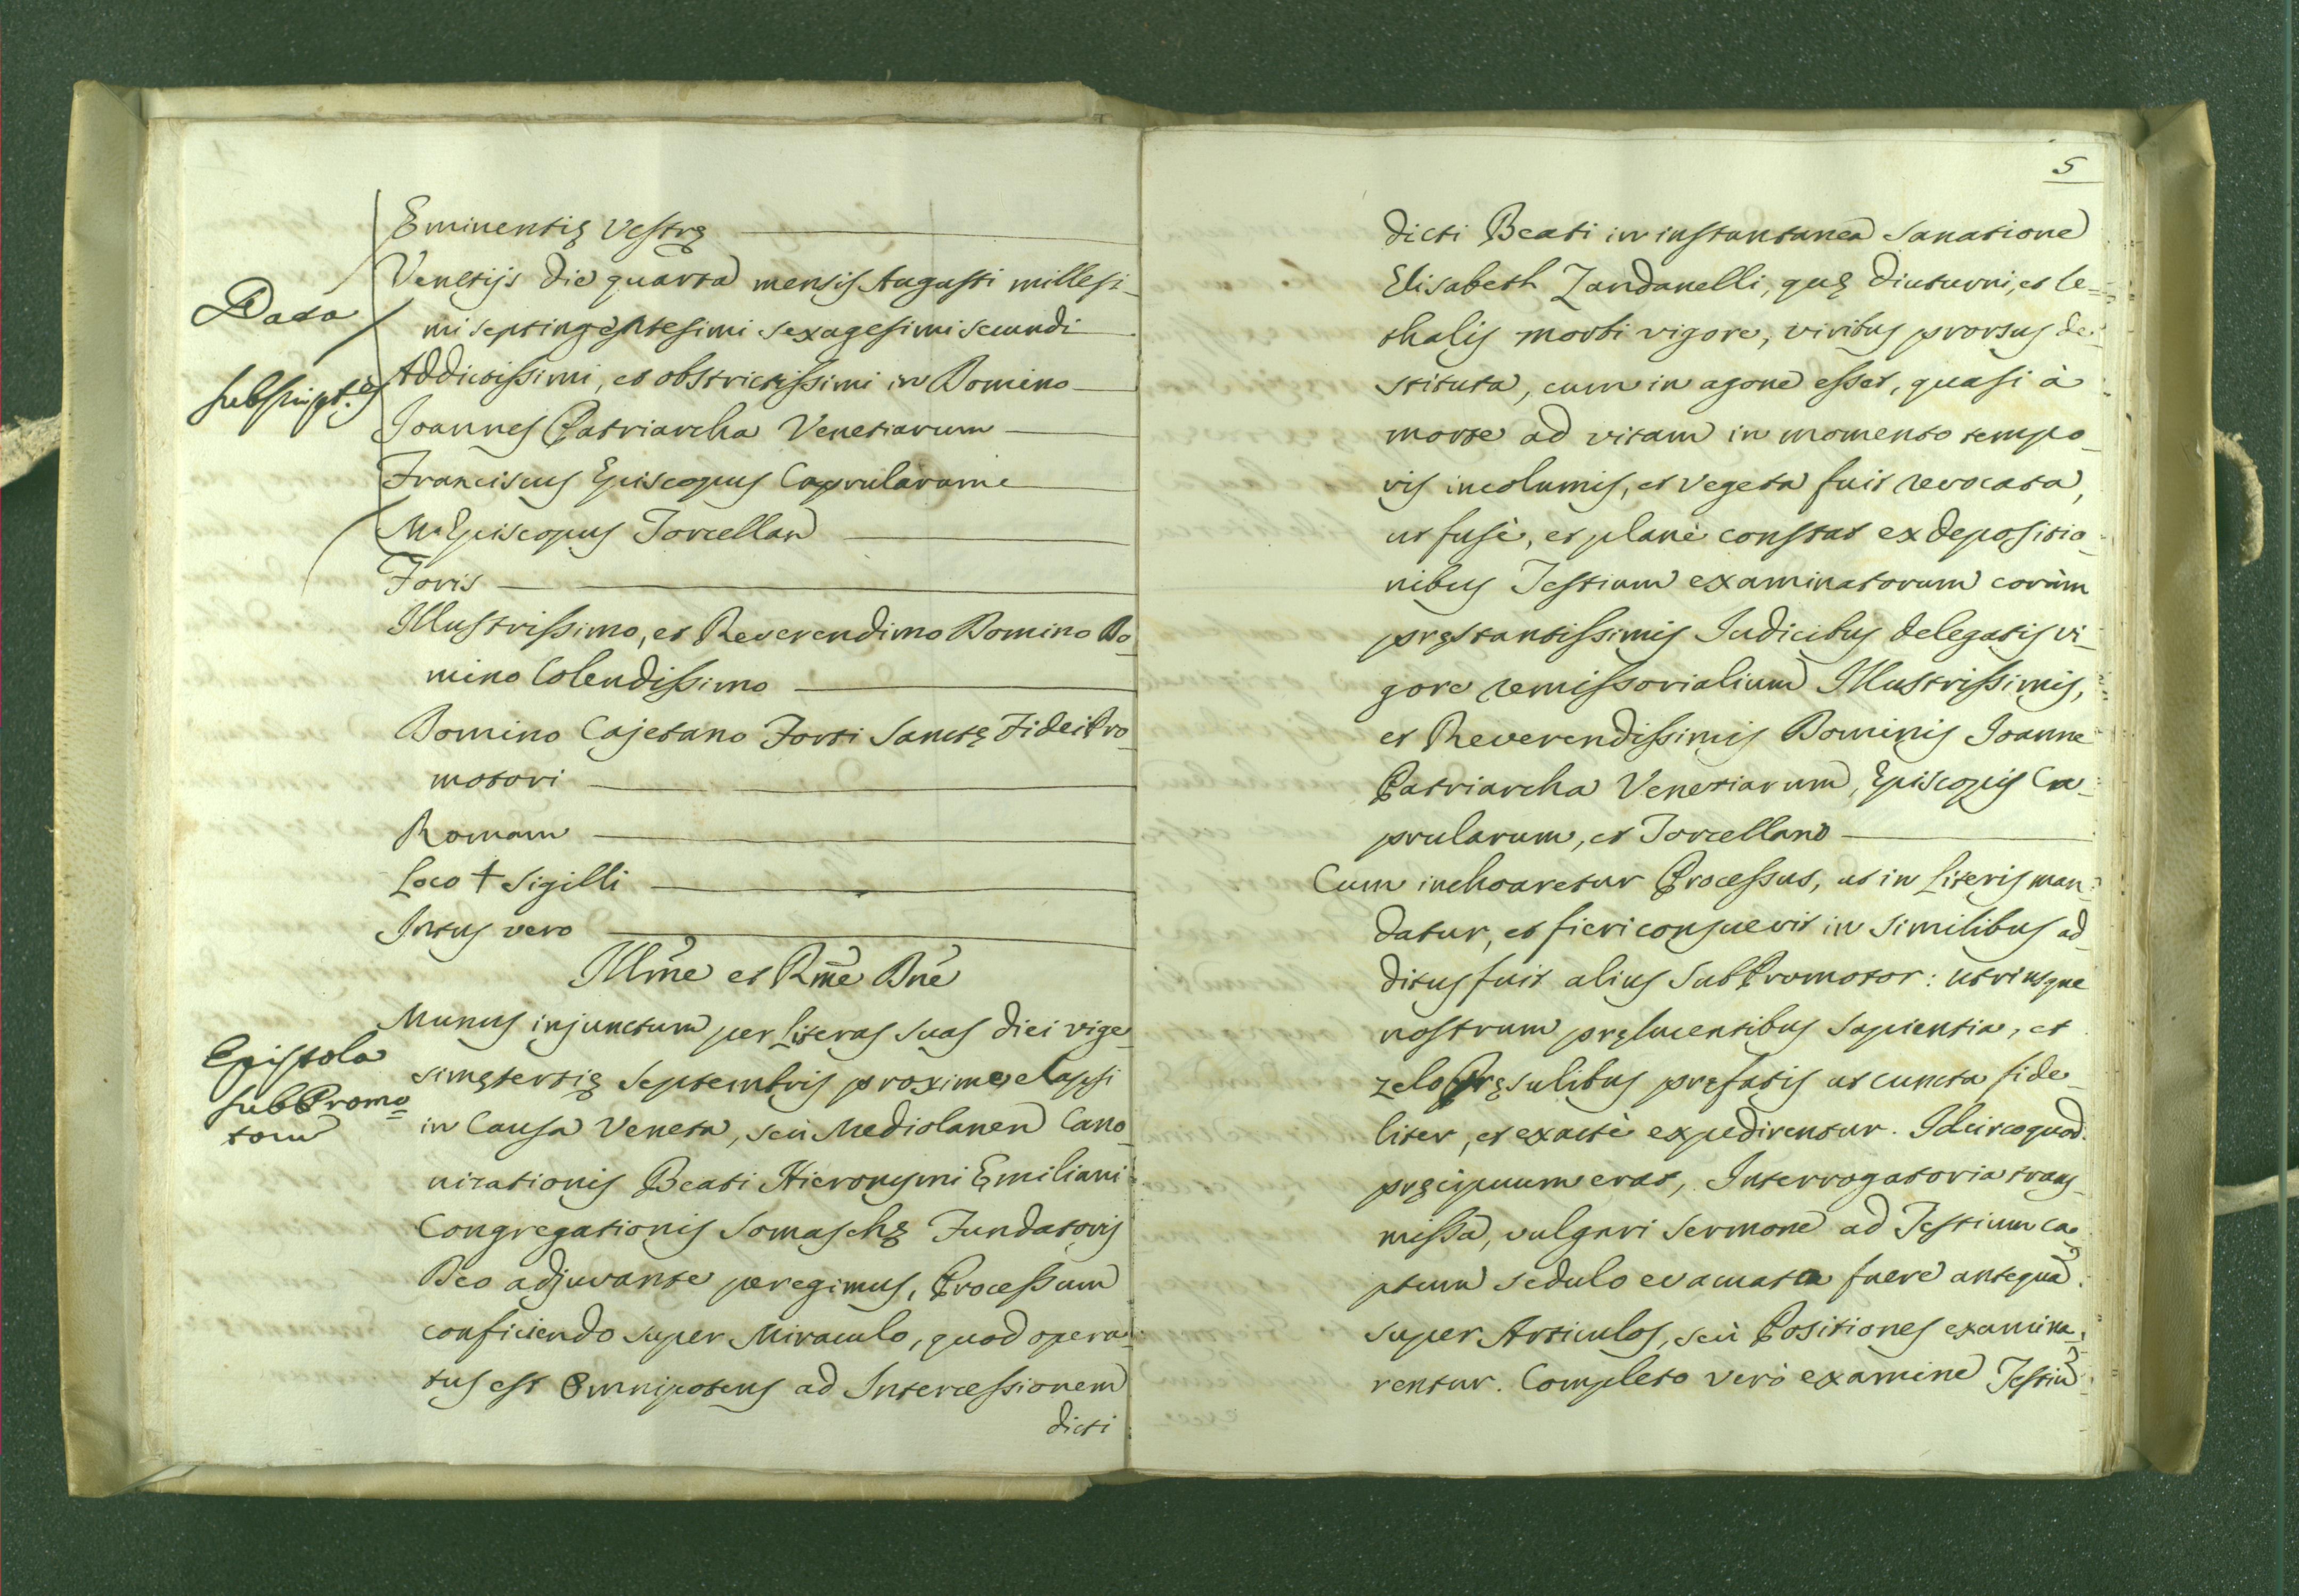 Eminentię Vestrę
Venetijs die quarta mensis Augusti millesi-
mi septingentesimi sexagesimi secundi
Data
Addictissimi, et obstrictissimi in Domino
Subscript.es
Joannes Patriarcha Venetiarum
Franciscus Episcopus Caprularum
M. Episcopus Torcellan
Foris
Illustrissimo, et Reverendimo Domino Do-
mino Colendissimo
Domino Cajetano Forti Sanctę Fidei Pro-
motori
Romam
Loco + Sigilli
Intus vero
Illm̃e et Rm̃e Dñe
Munus injunctum per Literas suas diei vige-
simętertię Septembris proxime elapsi
Epistola
SubPromo=
torum
in Causa Veneta, seù Mediolanen Cano-
nizationis Beati Hieronymi Ęmiliani
Congregationis Somaschę Fundatoris
Deo adjuvante peregimus, Processum
conficiendo super Miraculo, quod opera-
tus est Omnipotens ad Intercessionem
dicti
5
dicti Beati in instantanea sanatione
Elisabeth Zandanelli, quę diuturni, et le-
thalis morbi vigore, viribus prorsus de-
stituta, cum in agone esset, quasi à
morte ad vitam in momento tempo-
ris incolumis, et vegeta fuit revocata,
ut fusè, et planè constat ex depositio-
nibus Testium examinatorum coràm
pręstantissimis Judicibus delegatis vi-
gore remissorialium Illustrissimis,
et Reverendissimis Dominis Joanne
Patriarcha Venetiarum, Episcopis Ca-
prularum, et Torcellano
Cum inchoaretur Processus, ut in Literis man-
datur, et fieri consuevit in similibus ad-
ditus fuit alius SubPromotor: utriusque
nostrum pręlucentibus sapientia, et
zelo Pręsulibus pręfatis ut cuncta fide-
liter, et exactè expedirentur. Idcirco quod
pręcipuum erat, Interrogatoria trans-
missa, vulgari sermone ad Testium ca-
ptum sedulo evacuata fuere antequã
super Articulos, seù Positiones examina-
rentur. Completo verò examine Testiũ